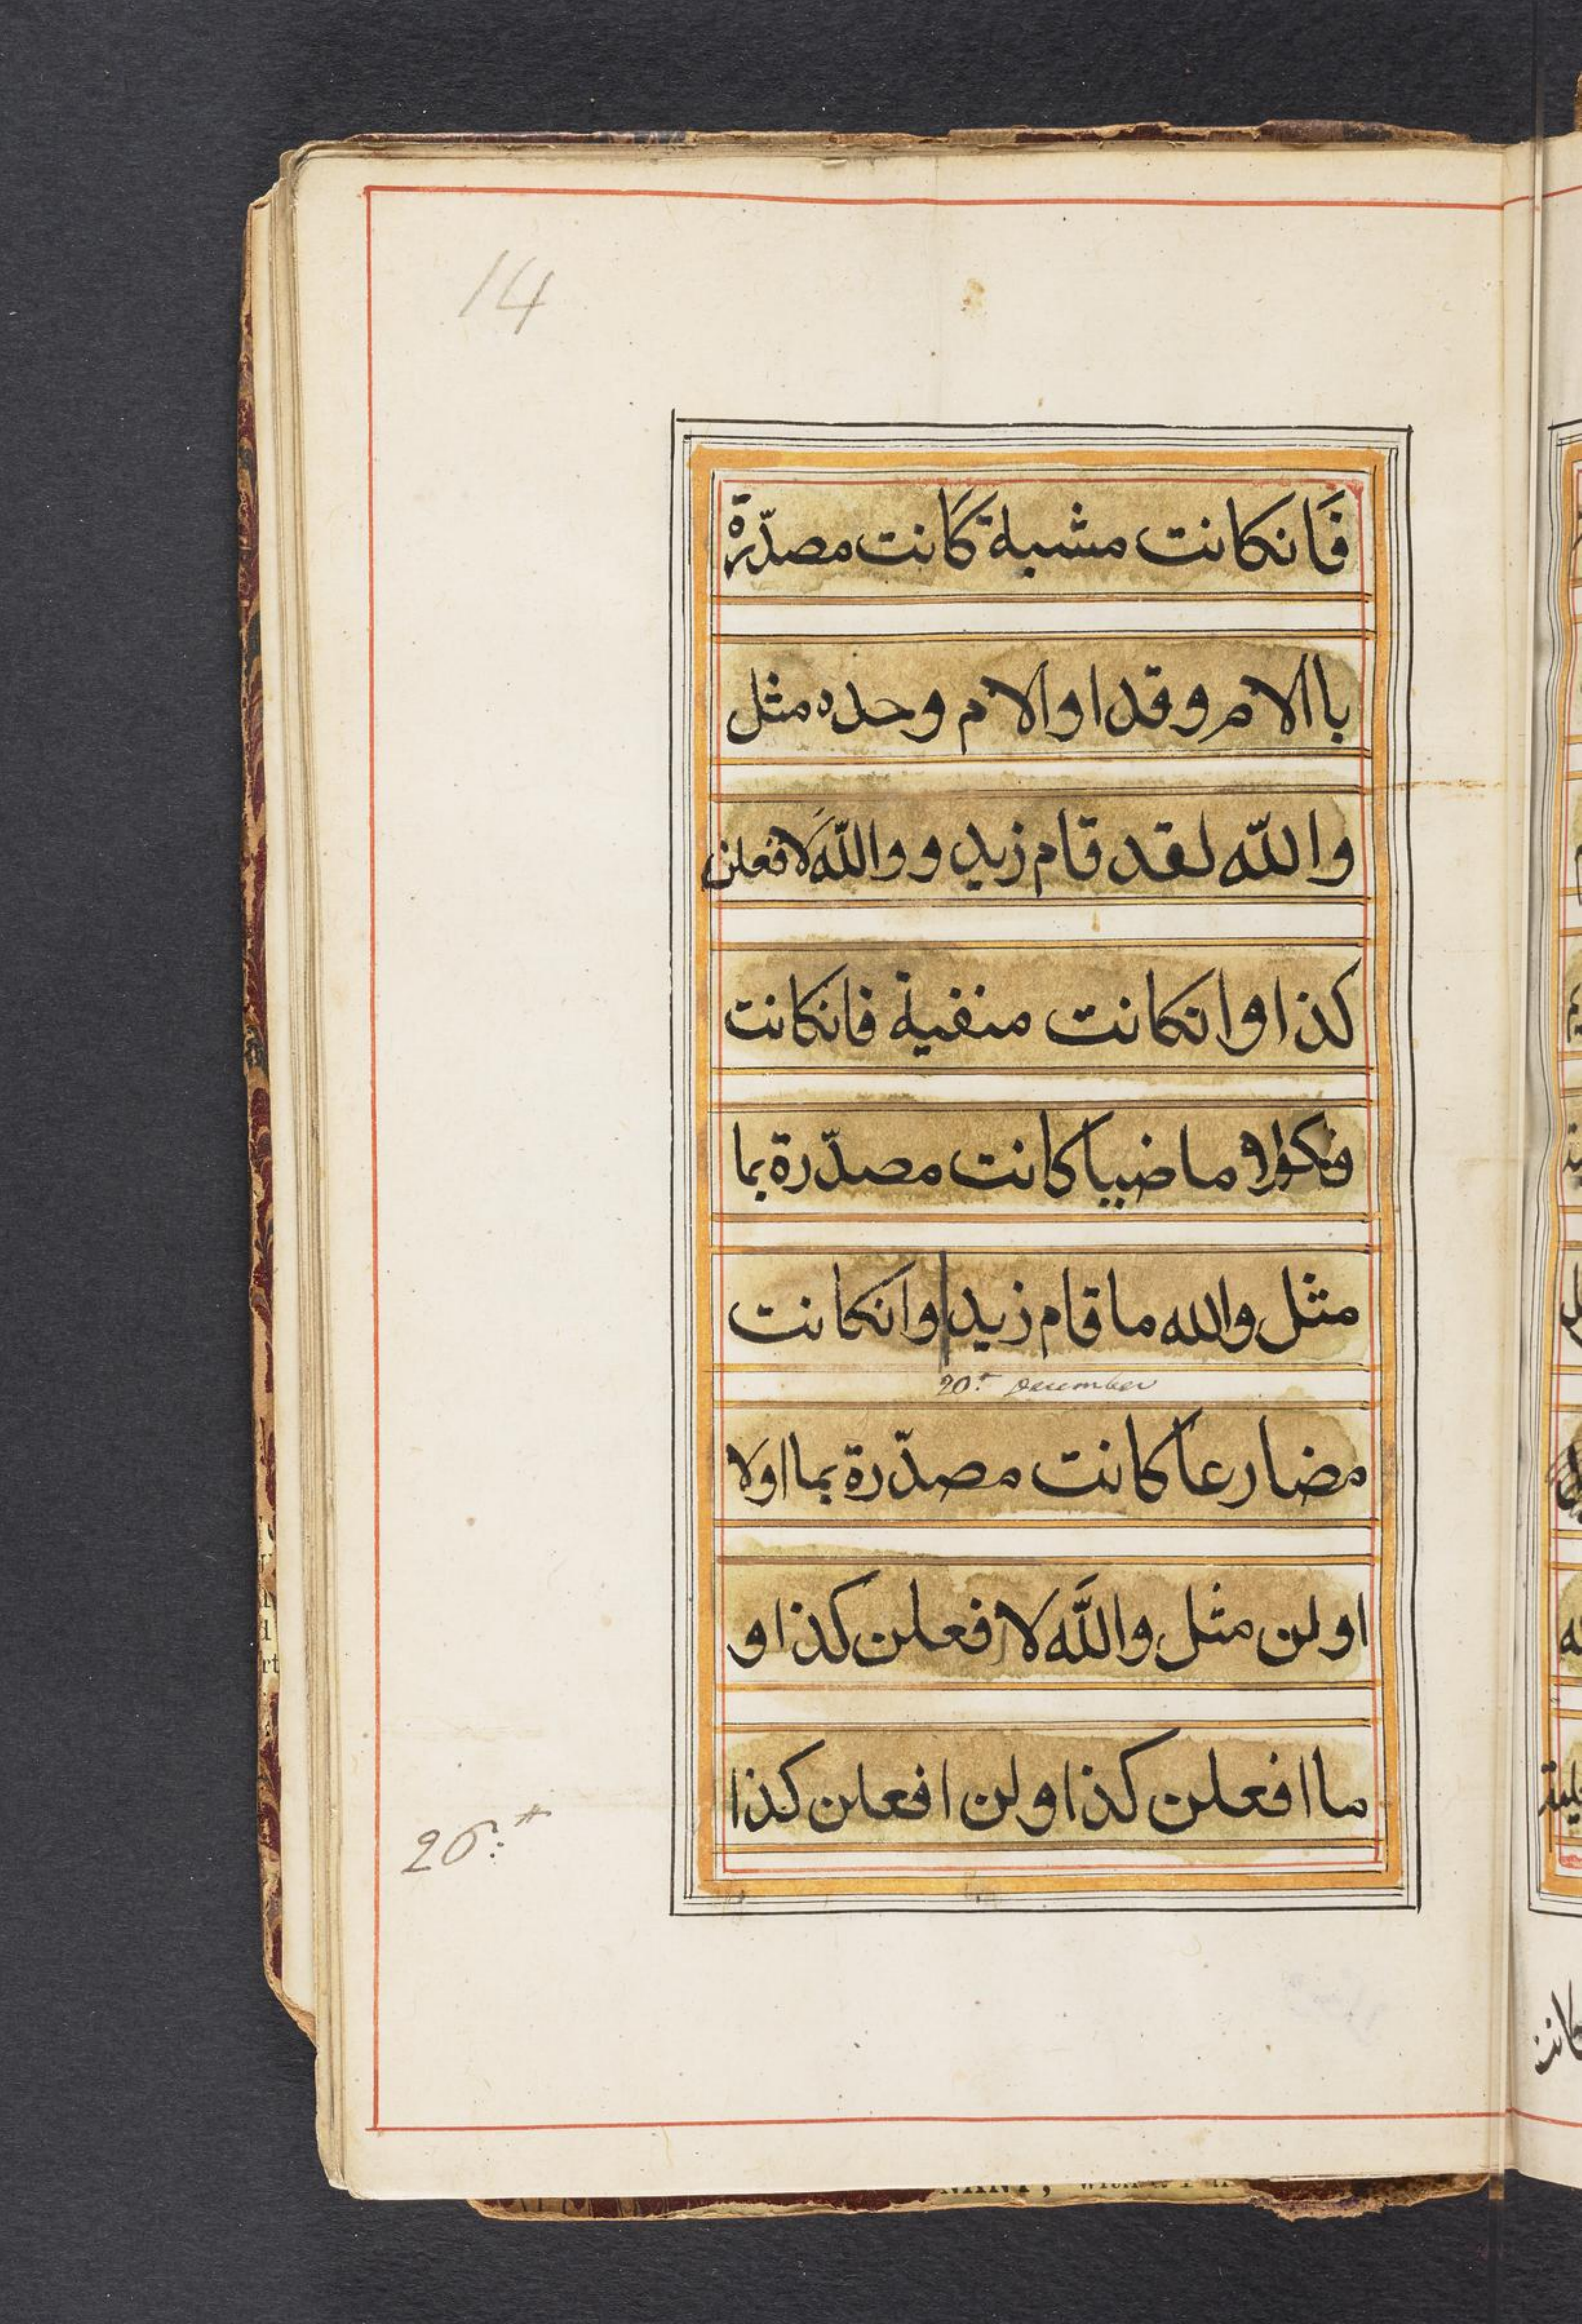 14
فَانكانت مشبة كَانت مصدّرة
باالام وقد اوالام وحده مثل
والله لقد قام زيد ووالله لَافعلن
كذا وانكانت منفية فانكانت
ماضيا كانت مصدّرة بما
مثل والله ما قام زيد وانكانت
20.t December
مضارعا كانت مصدّرة بما اولا
اولن مثل والله لا افعلن كذا و
ما افعلن كذا ولن افعلن كذا